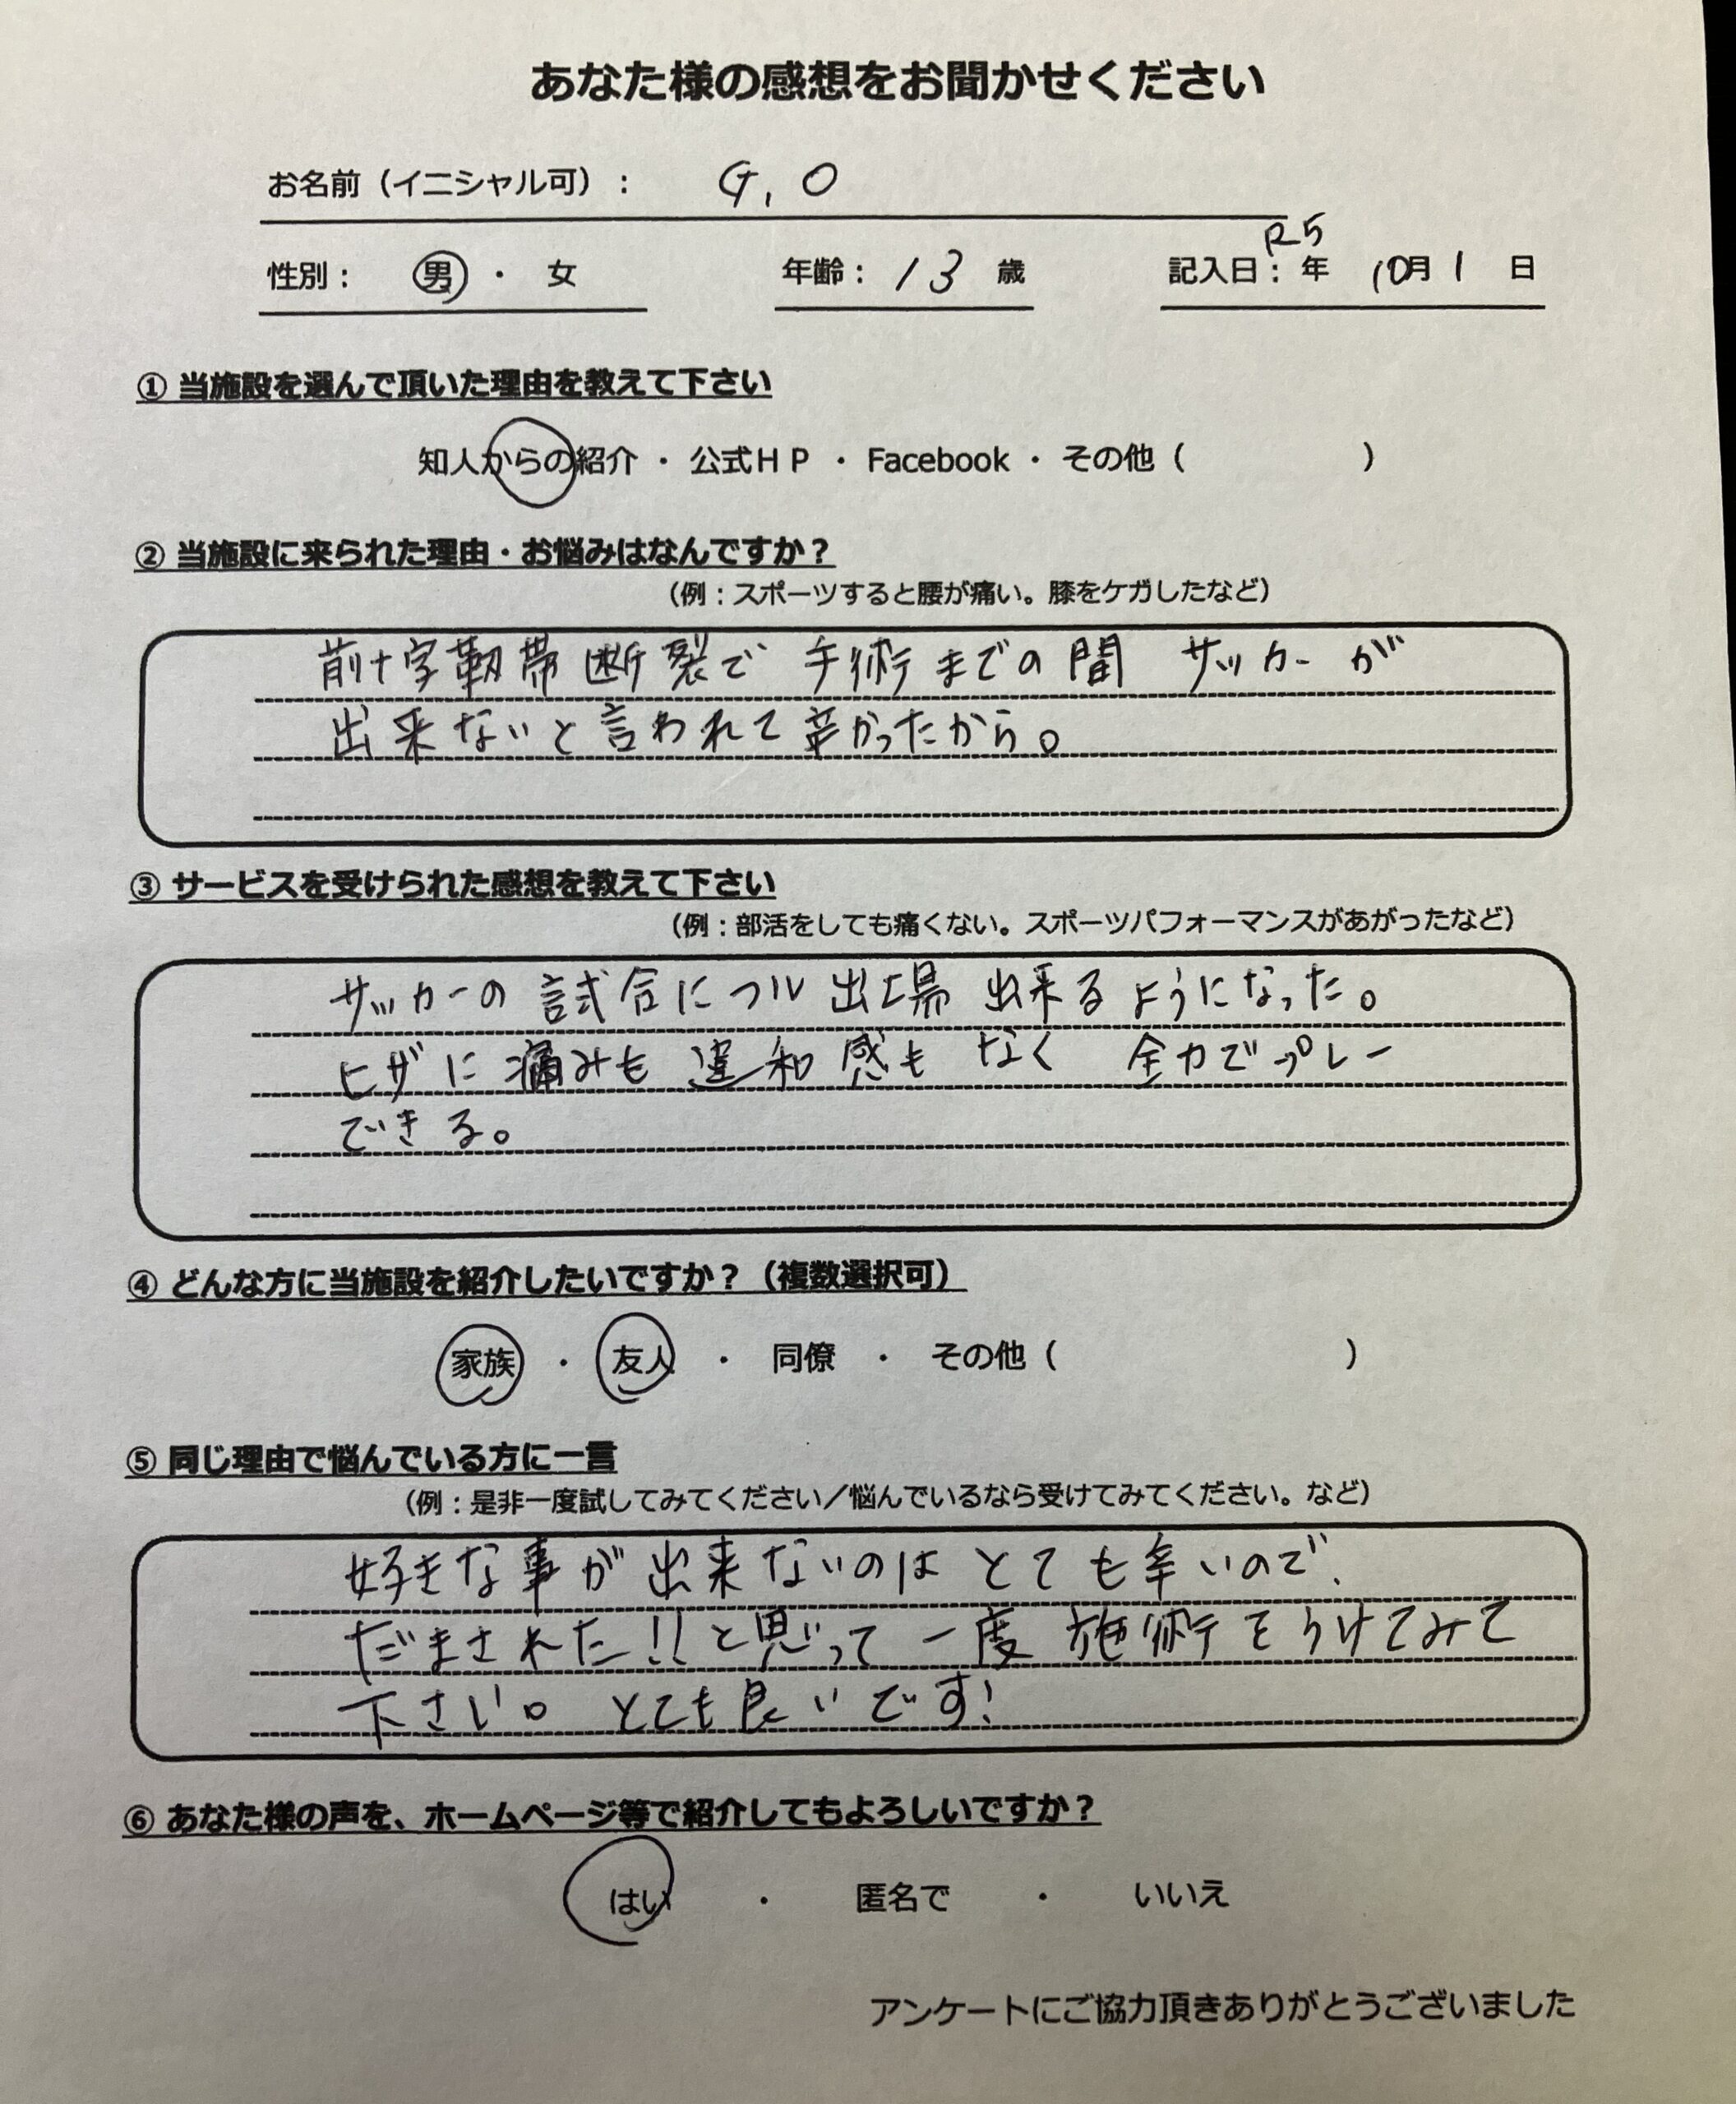 あなた様の感想をお聞かせください
お名前（イニシャル可）： G.O
R5
性別： 男 ・ 女 年齢： 13 歳 記入日： 年 10月 1 日
① 当施設を選んで頂いた理由を教えて下さい
知人からの紹介 ・ 公式ＨＰ ・ Facebook ・ その他（ ）
② 当施設に来られた理由・お悩みはなんですか？
（例：スポーツすると腰が痛い。膝をケガしたなど）
前十字靭帯断裂で 手術までの間 サッカーが
出来ないと言われて辛かったから。
③ サービスを受けられた感想を教えて下さい
（例：部活をしても痛くない。スポーツパフォーマンスがあがったなど）
サッカーの試合にフル出場出来るようになった。
ヒザに痛みも違和感もなく 全力でプレー
できる。
④ どんな方に当施設を紹介したいですか？（複数選択可）
家族 ・ 友人 ・ 同僚 ・ その他（ ）
⑤ 同じ理由で悩んでいる方に一言
（例：是非一度試してみてください／悩んでいるなら受けてみてください。など）
好きな事が出来ないのはとても辛いので、
だまされた!!と思って一度施術をうけてみて
下さい。 とても良いです!
⑥ あなた様の声を、ホームページ等で紹介してもよろしいですか？
はい ・ 匿名で ・ いいえ
アンケートにご協力頂きありがとうございました